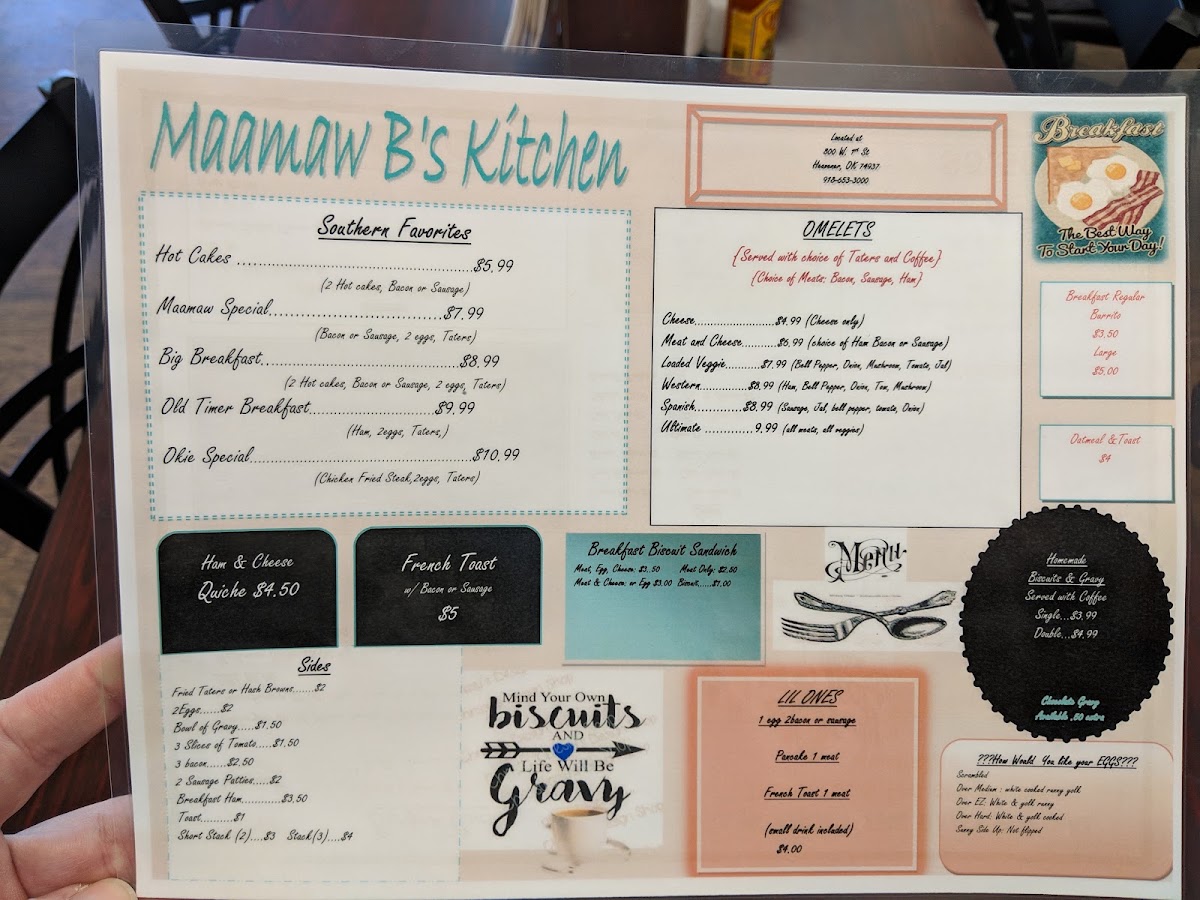 Maamaw B's Kitchen
Located at
800 W. 1st St
Heavener, OK 74937
918-653-3000
Breakfast
The Best Way
To Start Your Day!
Southern Favorites
Hot Cakes ................................................$5.99
(2 Hot cakes, Bacon or Sausage)
Maamaw Special...................................$7.99
(Bacon or Sausage, 2 eggs, Taters)
Big Breakfast........................................$8.99
(2 Hot cakes, Bacon or Sausage, 2 eggs, Taters)
Old Timer Breakfast.........................$9.99
(Ham, 2eggs, Taters,)
Okie Special..................................................$10.99
(Chicken Fried Steak,2eggs, Taters)
OMELETS
{Served with choice of Taters and Coffee}
(Choice of Meats: Bacon, Sausage, Ham}
Cheese.......................$4.99 (Cheese only)
Meat and Cheese..........$6.99 (choice of Ham Bacon or Sausage)
Loaded Veggie..........$7.99 (Bell Pepper, Onion, Mushroom, Tomato, Jal)
Western..............$8.99 (Ham, Bell Pepper, Onion, Tom, Mushroom)
Spanish..............$8.99 (Sausage, Jal, bell pepper, tomato, Onion)
Ultimate .............9.99 (all meats, all veggies)
Breakfast Regular
Burrito
$3.50
Large
$5.00
Oatmeal &Toast
$4
Ham & Cheese
Quiche $4.50
French Toast
w/ Bacon or Sausage
$5
Breakfast Biscuit Sandwich
Meat, Egg, Cheese: $3.50 Meat Only: $2.50
Meat & Cheese: or Egg $3.00 Biscuit......$1.00
Menu
Homemade
Biscuits & Gravy
Served with Coffee
Single...$3.99
Double...$4.99
Chocolate Gravy
Available .50 extra
Sides
Fried Taters or Hash Browns.......$2
2Eggs......$2
Bowl of Gravy.....$1.50
3 Slices of Tomato.....$1.50
3 bacon......$2.50
2 Sausage Patties.....$2
Breakfast Ham............$3.50
Toast...........$1
Short Stack (2)....$3 Stack(3)....$4
Mind Your Own
biscuits
AND
Life Will Be
Gravy
LIL ONES
1 egg 2bacon or sausage
Pancake 1 meat
French Toast 1 meat
(small drink included)
$4.00
???How Would You like your EGGS???
Scrambled
Over Medium : white cooked runny yolk
Over EZ: White & yolk runny
Over Hard: White & yolk cooked
Sunny Side Up: Not flipped